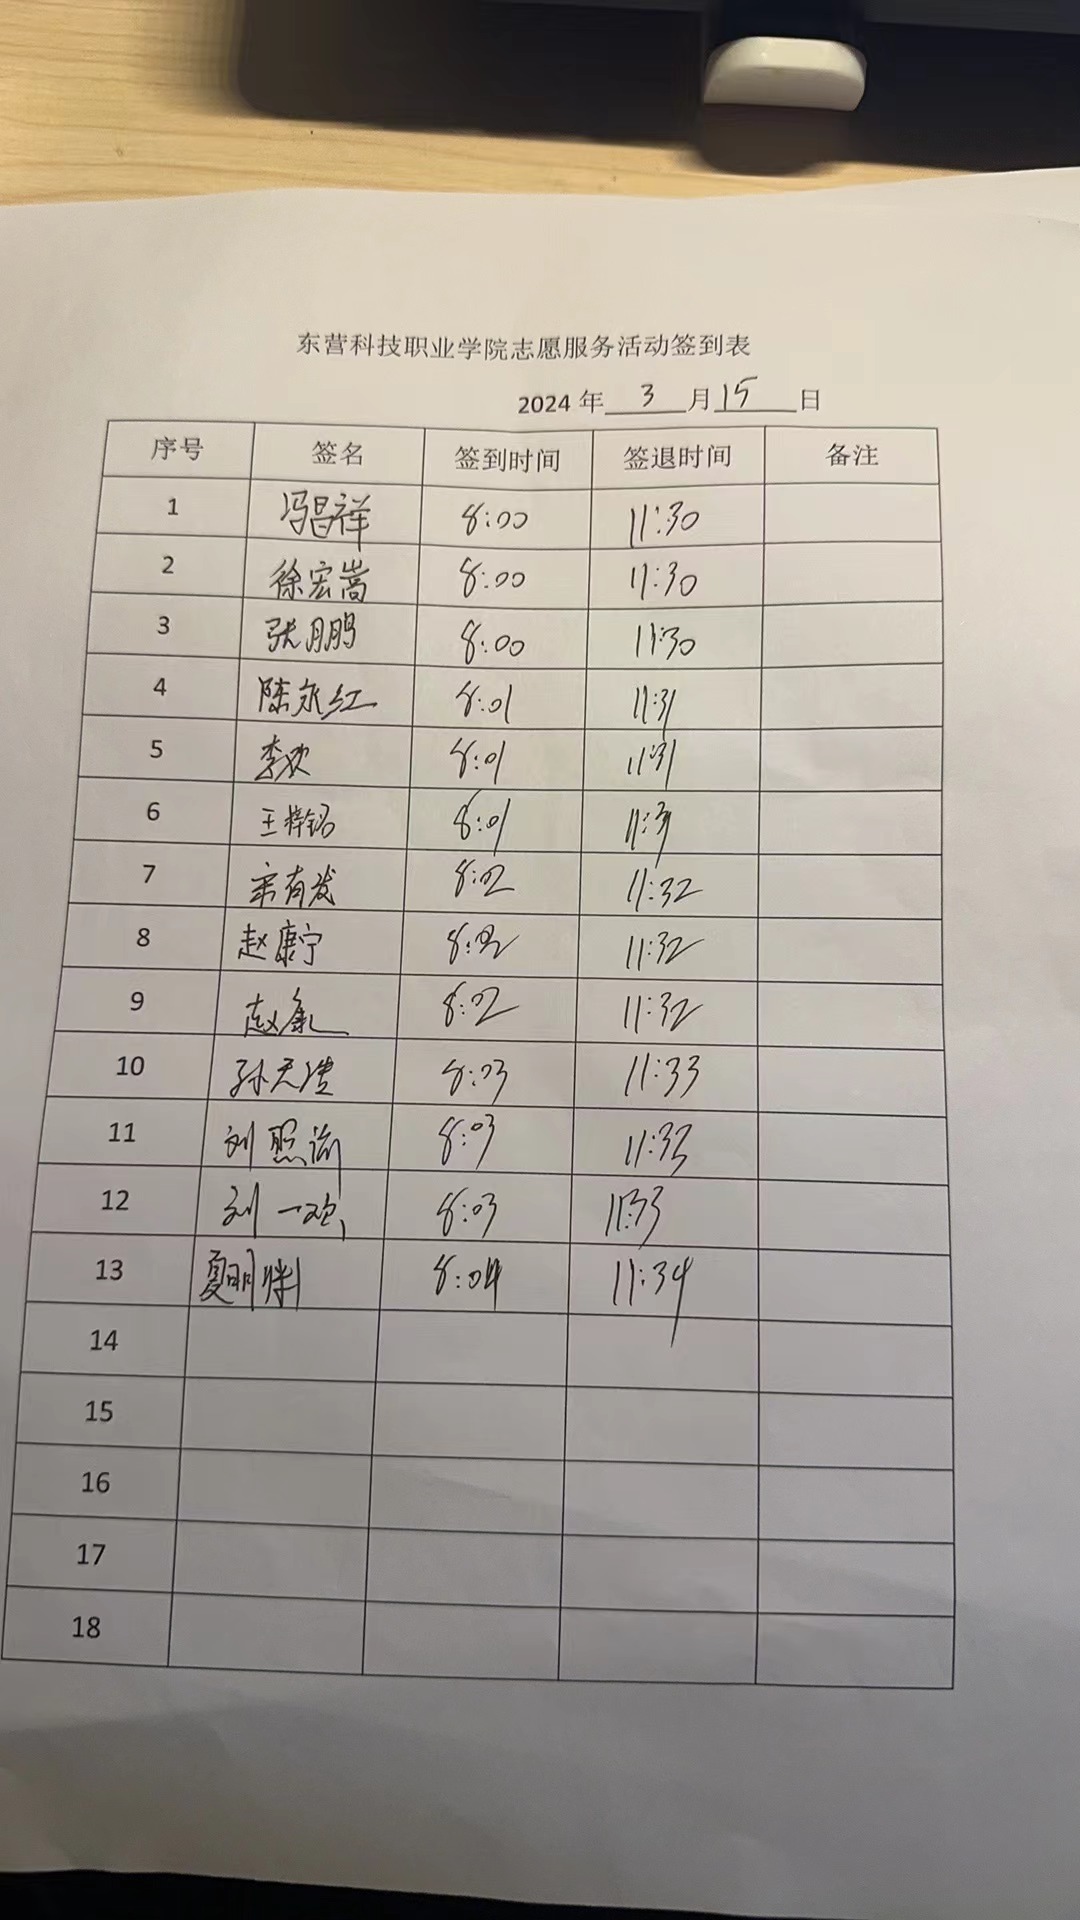 东营科技职业学院志愿服务活动签到表
2024 年 3 月 15 日
序号 签名 签到时间 签退时间 备注
1 冯昌祥 8:00 11:30
2 徐宏嵩 8:00 11:30
3 张鹏 8:00 11:30
4 陈永红 8:01 11:31
5 李欢 8:01 11:31
6 王梓铭 8:01 11:31
7 宋有发 8:02 11:32
8 赵康宁 8:02 11:32
9 赵 8:02 11:32
10 孙 8:03 11:33
11 刘照 8:03 11:33
12 刘一 8:03 11:33
13 夏明 8:04 11:34
14
15
16
17
18